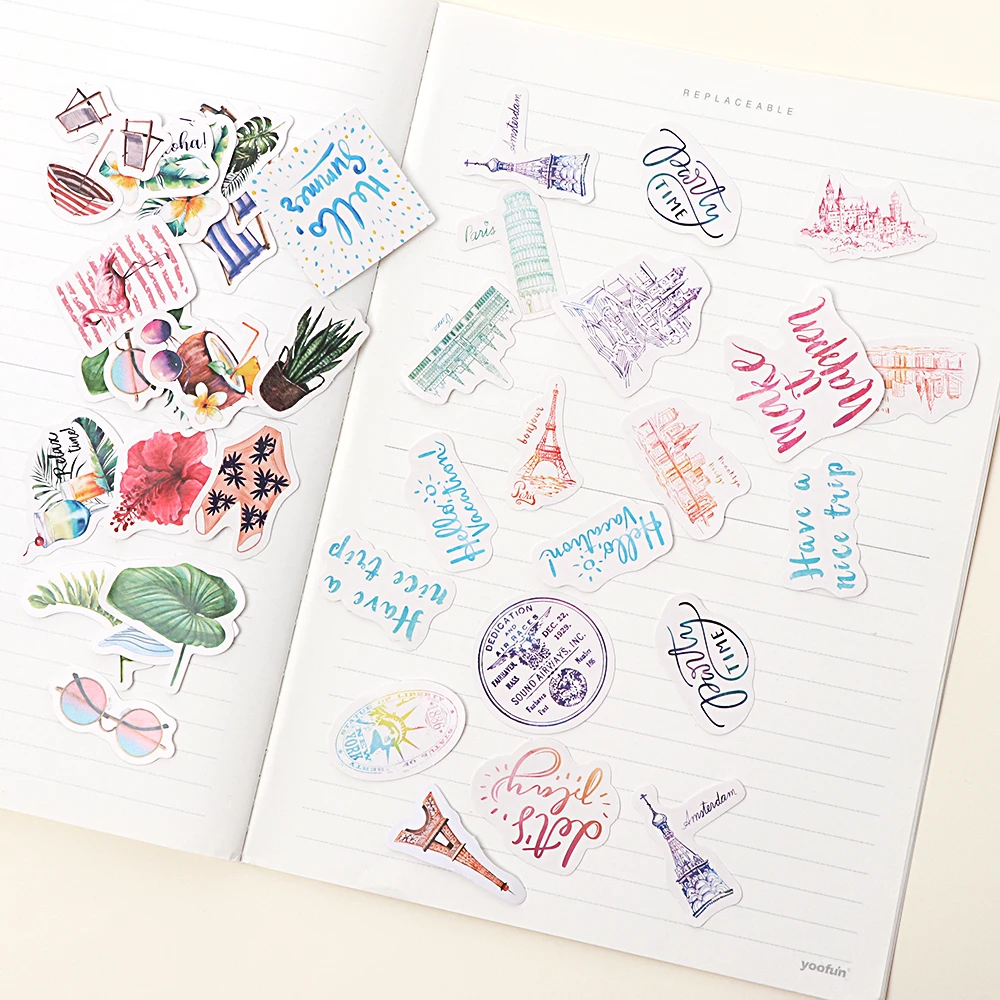 REPLACEABLE
Amsterdam
Party
TIME
oha!
Hello,
Summer
Paris
make
it
happen
bonjour
Paris
Relax
time!
Hello
Vacation!
Hello
Vacation!
Have a
nice trip
Have a
nice trip
DEDICATION
AND
AIR RACES
DEC. 22.
1929.
SOUND AIRWAYS, INC.
party
TIME
STATUE OF LIBERTY
NEW
YORK
Let's
play
Amsterdam
yoofun